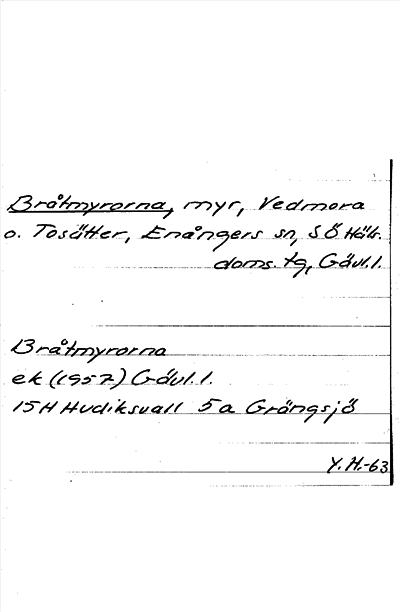 Bråtmyrorna, myr, Vedmora
o. Tosätter, Enångers sn, SÖ Häls.
doms. tg, Gävl.l.
Bråtmyrorna
ek (1957) Gävl.l.
15H Hudiksvall 5a Grängsjö
Y.H.-63